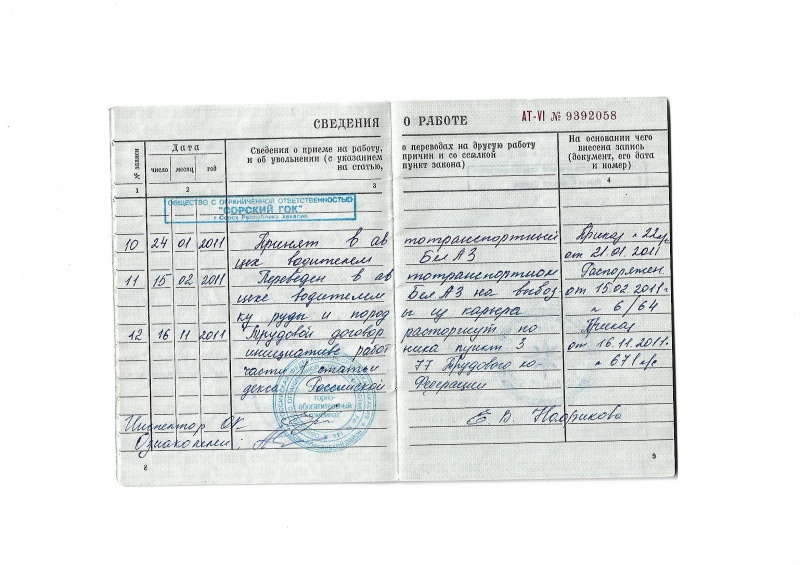 СВЕДЕНИЯ О РАБОТЕ АТ-VI № 9392058
№ записи
Дата
число месяц год
Сведения о приеме на работу, о переводах на другую работу
и об увольнении (с указанием причин и со ссылкой
на статью, пункт закона)
На основании чего
внесена запись
(документ, его дата
и номер)
1 2 3 4
ОБЩЕСТВО С ОГРАНИЧЕННОЙ ОТВЕТСТВЕННОСТЬЮ
"СОРСКИЙ ГОК"
г.Сорск Республика Хакасия
10 24 01 2011 Принят в автотранспортный Приказ № 22л/с
цех водителем БелАЗ от 21.01.2011
11 15 02 2011 Переведен в автотранспортном Распоряжен.
цехе водителем БелАЗ на вывоз от 15.02.2011
ку руды и пород ы из карьера № 6/64
12 16 11 2011 Трудовой договор расторгнут по Приказ
инициативе работника пункт 3 от 16.11.2011
части 1 статьи 77 Трудового ко- № 671 л/с
декса Российской Федерации
горно-
обогатительный
Инспектор ОК Е. В.
Ознакомлен:
8 9